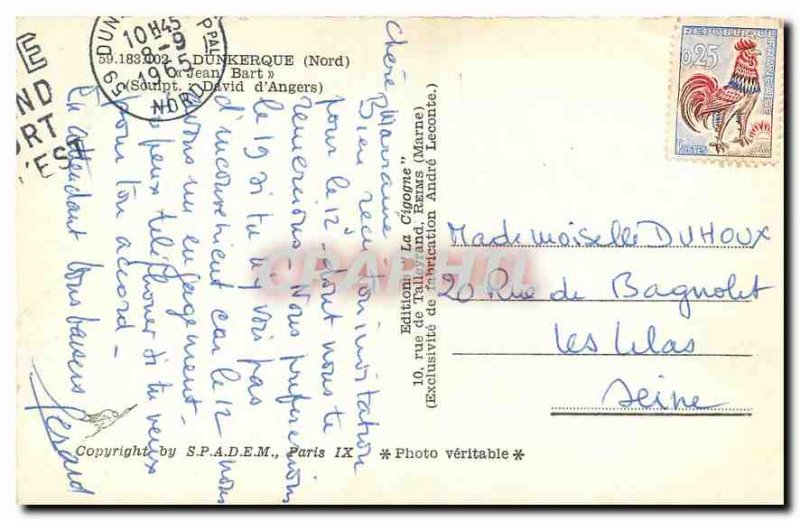 59.183.102 - DUNKERQUE (Nord)
« Jean Bart »
(Sculpt. : David d'Angers)
DUN
PPAL
10H45
8 - 9
1965
59
NORD
E
ND
ORT
'EST
RÉPUBLIQUE FRANÇAISE
0,25
POSTES
Chère Marraine
Bien reçu ton invitation
pour le 12 dont nous te
remercions - Nous préférerions
le 19 si tu n'y vois pas
d'inconvénient car le 12 nous
avons un engagement -
Tu peux téléphoner si tu veux
pour ton accord -
En attendant bons baisers
Gérard
Editions "La Cigogne"
10, rue de Talleyrand, REIMS (Marne)
(Exclusivité de fabrication André Leconte.)
Mademoiselle DUHOUX
20 Rue de Bagnolet
Les Lilas
Seine
CPAPHIL
Copyright by S.P.A.D.E.M., Paris IX
* Photo véritable *